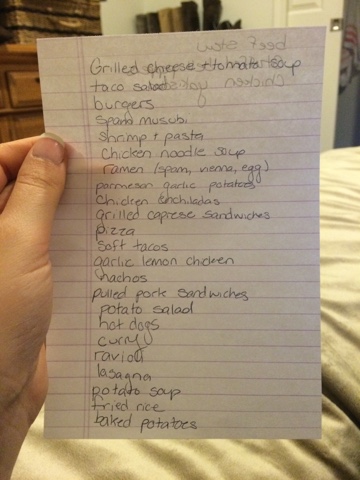 Grilled cheese + tomato soup
taco salad
burgers
spam musubi
shrimp + pasta
chicken noodle soup
ramen (spam, vienna, egg)
parmesan garlic potatoes
chicken enchiladas
grilled caprese sandwiches
pizza
soft tacos
garlic lemon chicken
nachos
pulled pork sandwiches
potato salad
hot dogs
curry
ravioli
lasagna
potato soup
fried rice
baked potatoes